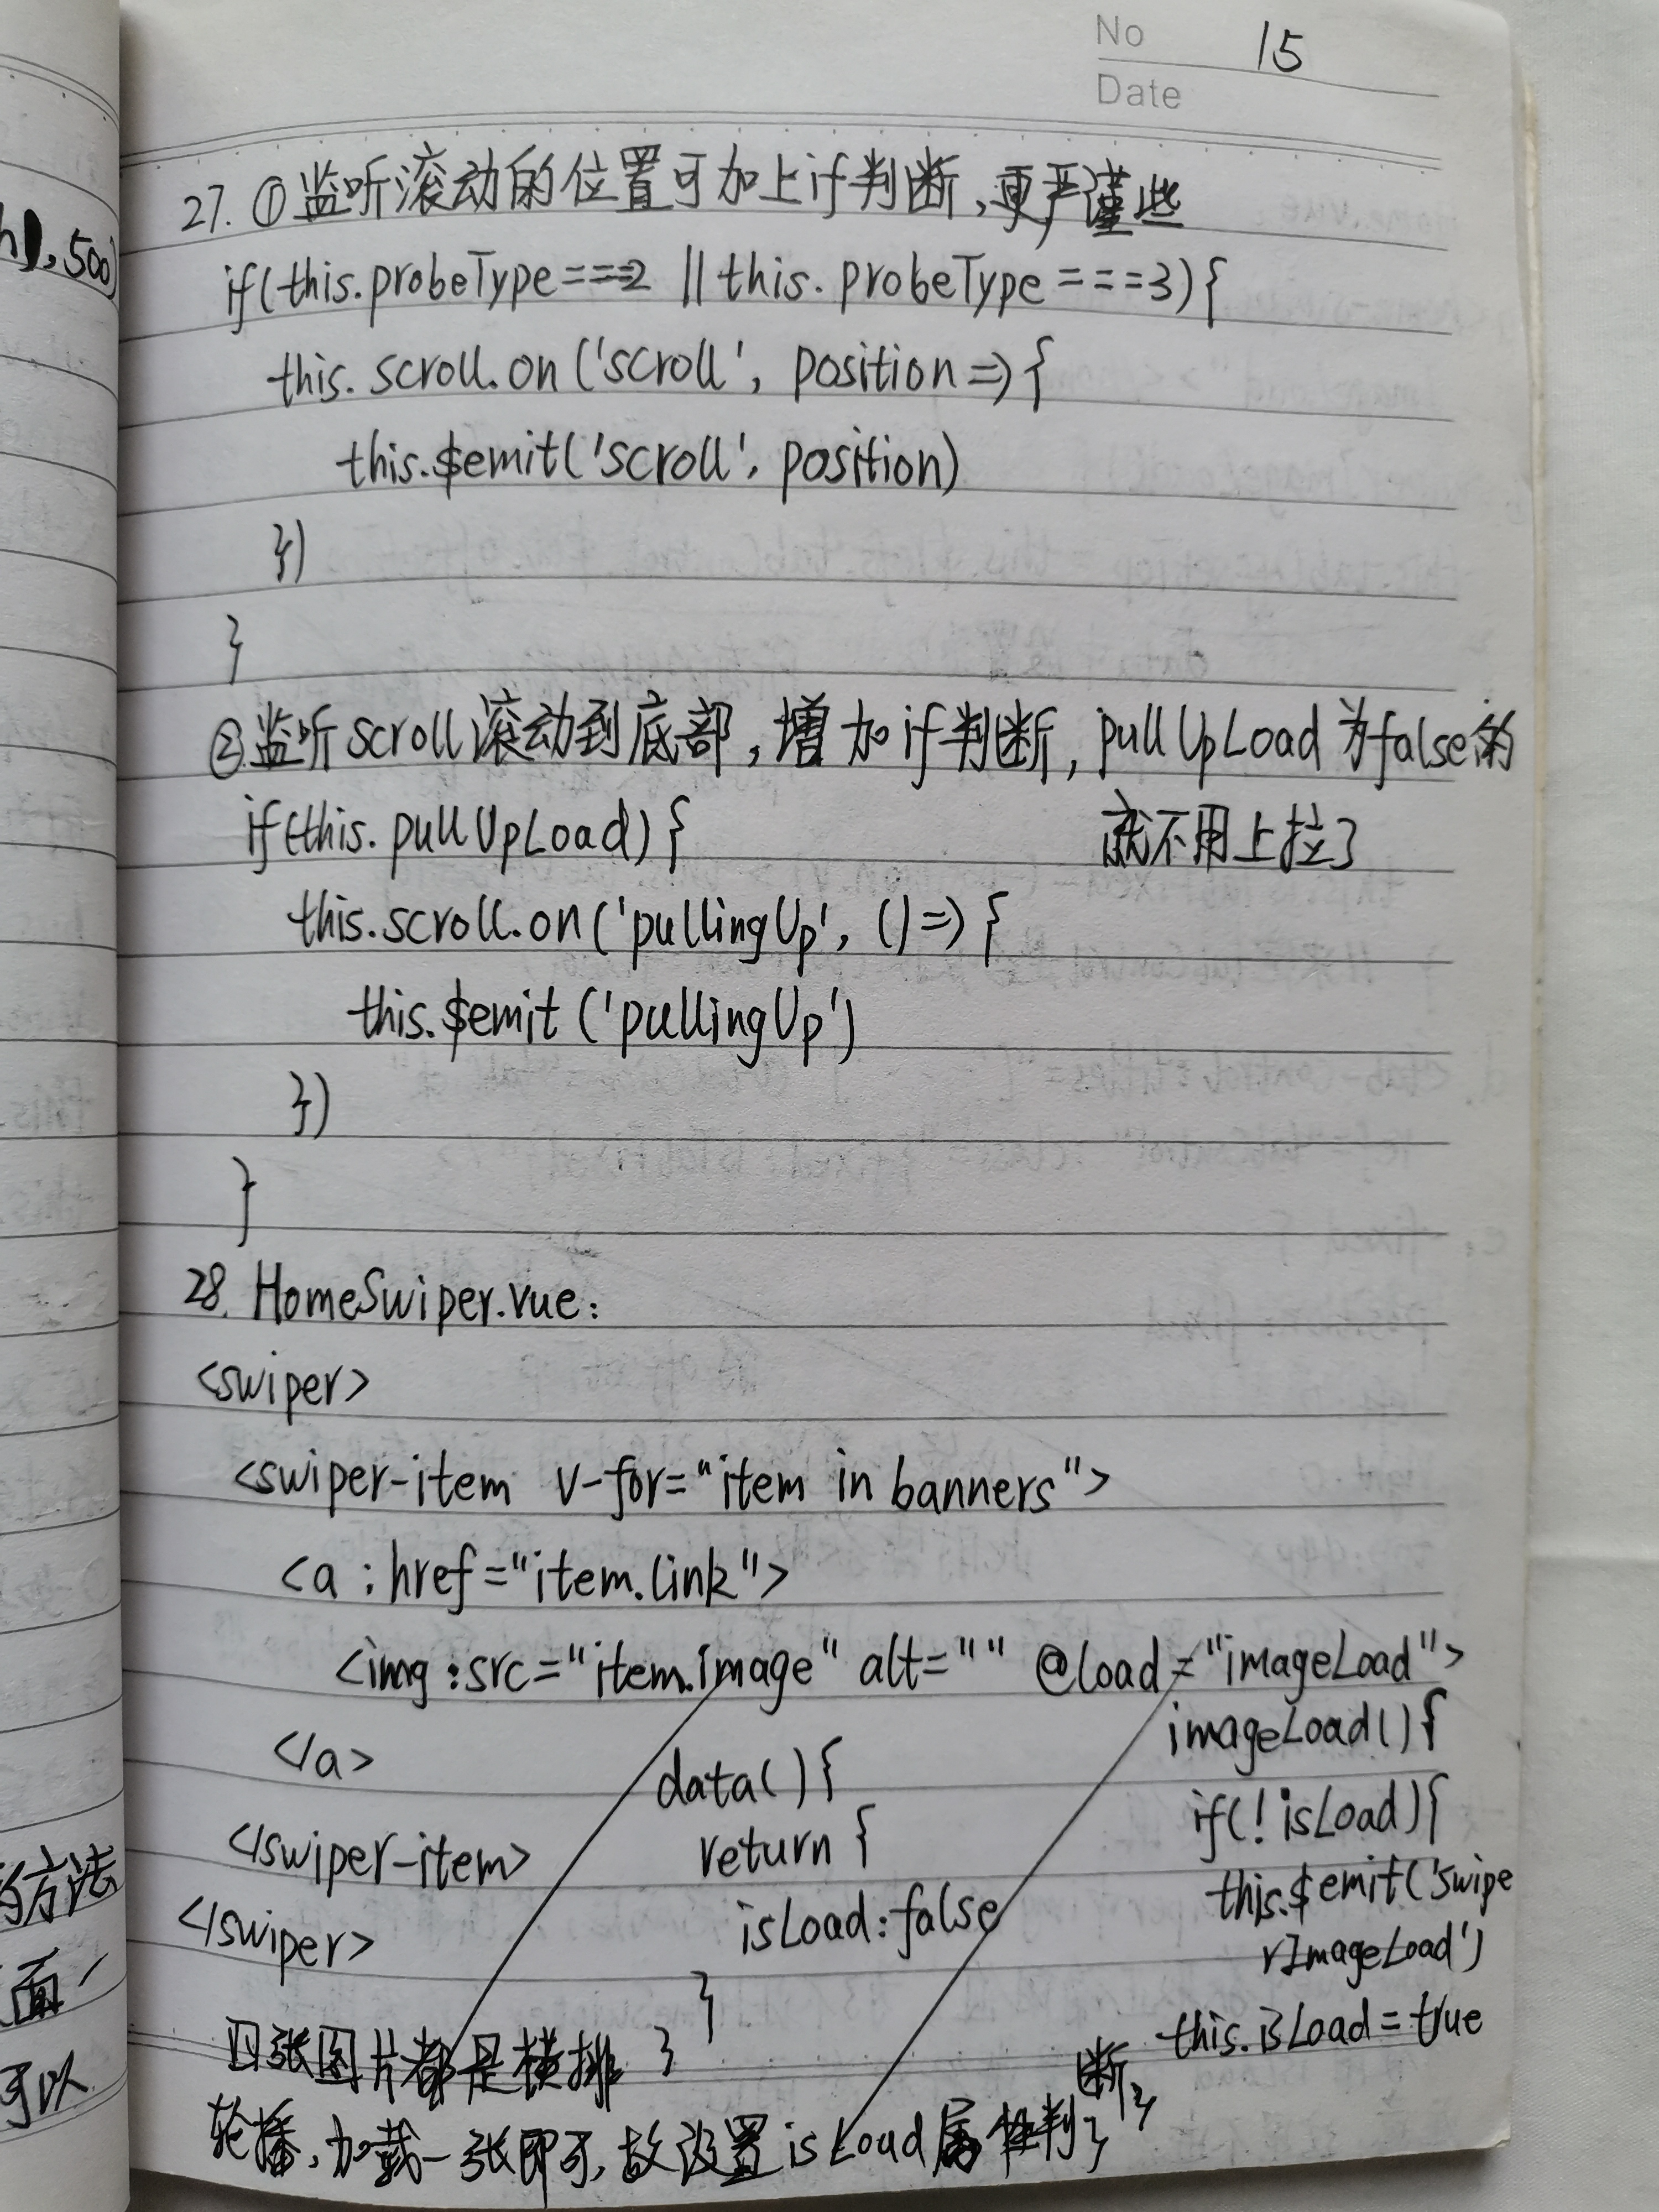 No 15
Date
27. ①监听滚动的位置可加上if判断,更严谨些
if(this.probeType===2 || this.probeType===3){
this.scroll.on('scroll', position=>{
this.$emit('scroll', position)
})
}
②监听scroll滚动到底部,增加if判断, pullUpLoad为false的
就不用上拉了
if(this.pullUpLoad){
this.scroll.on('pullingUp', ()=>{
this.$emit('pullingUp')
})
}
28. HomeSwiper.vue:
<swiper>
<swiper-item v-for="item in banners">
<a :href="item.link">
<img :src="item.image" alt="" @load="imageLoad">
</a>
</swiper-item>
</swiper>
data(){
return {
isLoad:false
}
}
imageLoad(){
if(!isLoad){
this.$emit('swipe
rImageLoad')
this.isLoad=true
}
}
四张图片都是横排
轮播,加载一张即可,故设置isLoad属性判
断
h),500)
的方法
面
可以